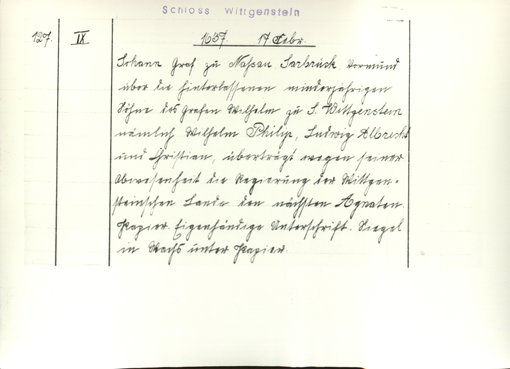 Schloss Wittgenstein
127. IX 1637 17 Febr.
Johann Graf zu Naßau Sarbrück Vormund
über die hinterlassenen minderjährigen
Söhne des Grafen Wilhelm zu S. Wittgenstein
nämlich Wilhelm Philip, Ludwig Albrecht
und Christian, überträgt wegen seiner
Abwesenheit die Regierung der Wittgen-
steinschen Lande den nächsten Agnaten.
Papier. Eigenhändige Unterschrift. Siegel
in Wachs unter Papier.